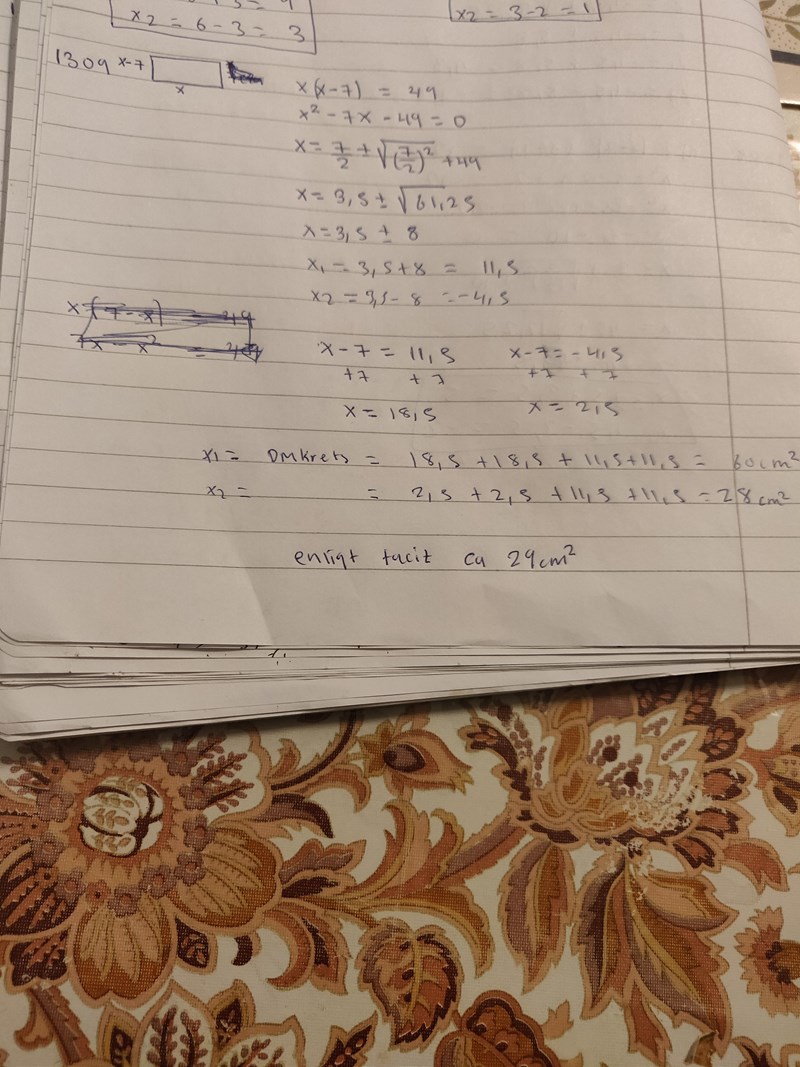 x2 = 6 - 3 = 3
x2 = 3-2 = 1
1309 x-7
x
x(x-7) = 49
x² - 7x - 49 = 0
x = 7/2 ± √(7/2)² + 49
x = 3,5 ± √61,25
x = 3,5 ± 8
x₁ = 3,5+8 = 11,5
x2 = 3,5 - 8 = -4,5
x (7-x) = 49
7x - x² = 49
x-7 = 11,5 x-7 = -4,5
+7 +7 +7 +7
x = 18,5 x = 2,5
x1 = Omkrets = 18,5 +18,5 + 11,5+11,5 = 60cm²
x2 = = 2,5 + 2,5 + 11,5 + 11,5 = 28cm²
enligt facit ca 29cm²